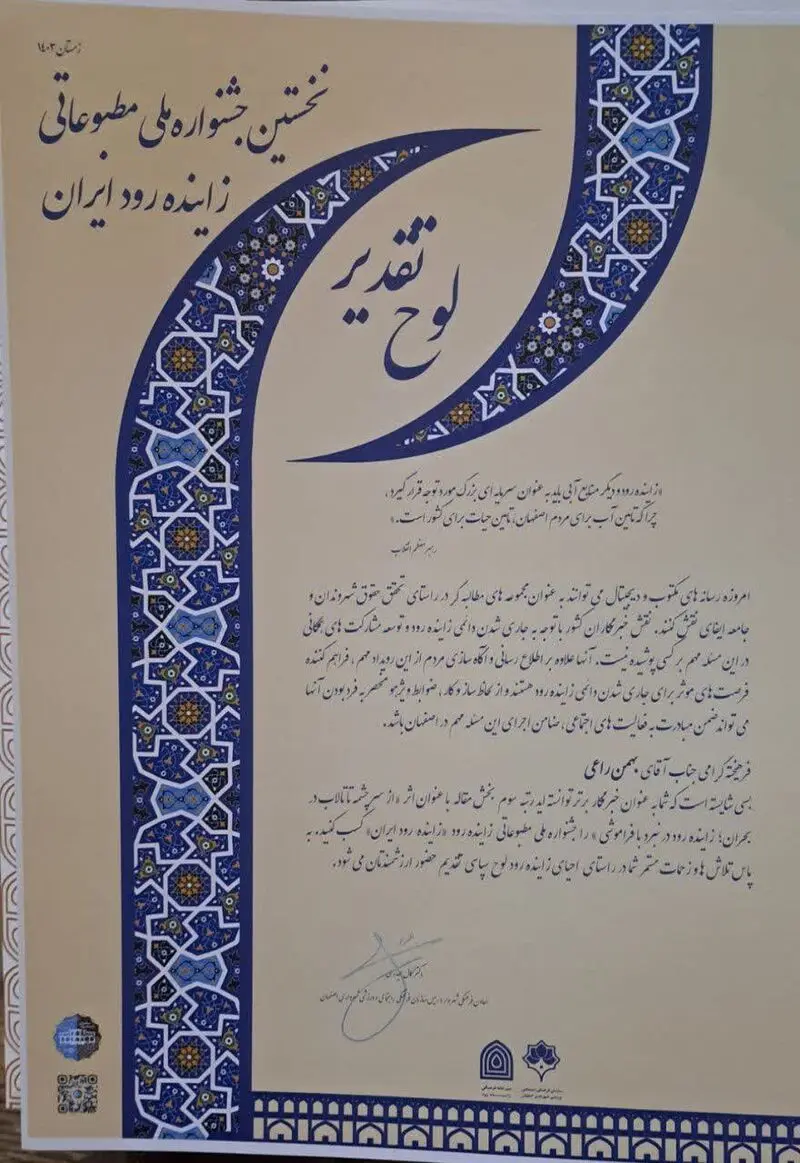 زمستان ۱۴۰۳
نخستین جشنواره ملی مطبوعاتی
زاینده رود ایران
لوح
تقدیر
«زاینده رود و دیگر منابع آبی باید به عنوان سرمایه ای بزرگ مورد توجه قرار گیرد،
چرا که تامین آب برای مردم اصفهان، تامین حیات برای کشور است.»
رهبر معظم انقلاب
امروزه رسانه های مکتوب و دیجیتال می توانند به عنوان مجموعه های مطالبه گر در راستای تحقق حقوق شهروندان و
جامعه ایفای نقش کنند. نقش خبرنگاران کشور با توجه به جاری شدن دائمی زاینده رود و توسعه مشارکت های همگانی
در این مسئله مهم بر کسی پوشیده نیست. آنها علاوه بر اطلاع رسانی و آگاه سازی مردم از این رویداد مهم، فراهم کننده
فرصت های موثر برای جاری شدن دائمی زاینده رود هستند و از لحاظ ساز و کار، ضوابط ویژه و منحصر به فرد بودن آنها
می تواند ضمن مبادرت به فعالیت های اجتماعی، ضامن اجرای این مسئله مهم در اصفهان باشد.
فرهیخته گرامی جناب آقای بهمن راعی
بسی شایسته است که شما به عنوان خبرنگار برتر توانسته اید رتبه سوم بخش مقاله با عنوان اثر «از سرچشمه تا تالاب در
بحران؛ زاینده رود در نبرد با فراموشی» را جشنواره ملی مطبوعاتی زاینده رود «زاینده رود ایران» کسب کنید. به
پاس تلاش ها و زحمات مستمر شما در راستای احیای زاینده رود لوح سپاسی تقدیم حضور ارزشمندتان می شود.
دکتر
معاون فرهنگی شهردار و رییس سازمان فرهنگی اجتماعی و ورزشی شهرداری اصفهان